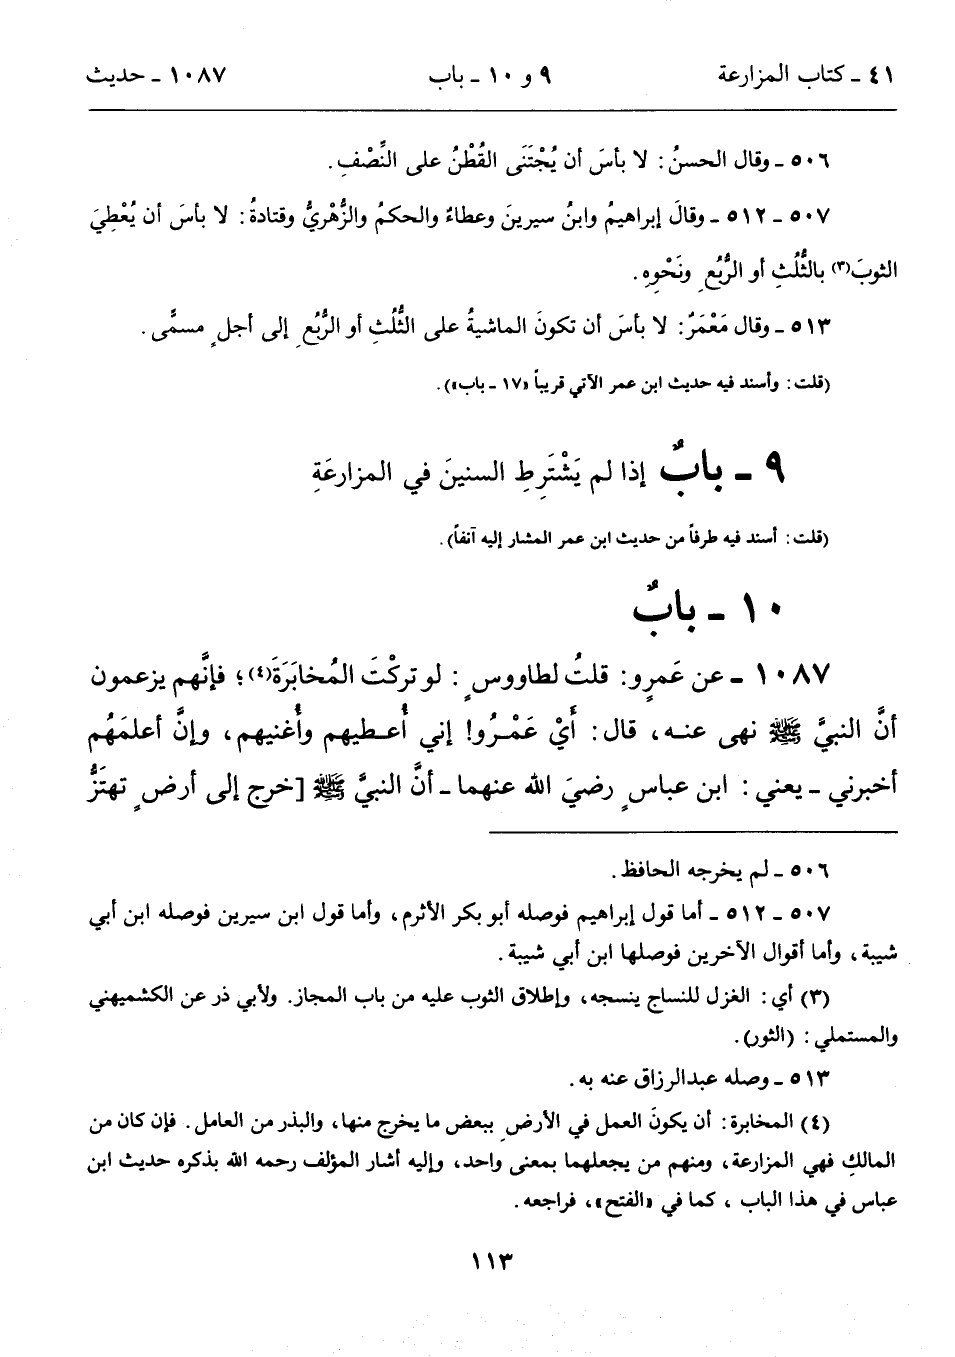 ٤١ ـ كتاب المزارعة ٩ و ١٠ ـ باب ١٠٨٧ ـ حديث
٥٠٦ ـ وقال الحسنُ: لا بأسَ أن يُجْتَنَى القُطْنُ على النِّصْفِ.
٥٠٧ ـ ٥١٢ ـ وقالَ إبراهيمُ وابنُ سيرينَ وعطاءٌ والحكمُ والزُّهْريُّ وقتادةُ: لا بأسَ أن يُعْطِيَ
الثوبَ(٣) بالثُّلُثِ أو الرُّبُعِ ونَحْوِهِ.
٥١٣ ـ وقال مَعْمَرٌ: لا بأسَ أن تكونَ الماشيةُ على الثُّلُثِ أو الرُّبُعِ إلى أجلٍ مسمًّى.
(قلت: وأسند فيه حديث ابن عمر الآتي قريباً «١٧ ـ باب»).
٩ ـ بابٌ إذا لم يَشْتَرِطِ السنينَ في المزارعَةِ
(قلت: أسند فيه طرفاً من حديث ابن عمر المشار إليه آنفاً).
١٠ ـ بابٌ
١٠٨٧ ـ عن عَمرٍو: قلتُ لطاووسٍ: لو تركْتَ المُخابَرَةَ(٤)؛ فإنَّهم يزعمون
أنَّ النبيَّ ﷺ نهى عنه، قال: أيْ عَمْرُو! إني أُعطيهم وأُغنيهم، وإنَّ أعلمَهُم
أخبرني ـ يعني: ابن عباسٍ رضيَ الله عنهما ـ أنَّ النبيَّ ﷺ [خرج إلى أرضٍ تهتَزُّ
٥٠٦ ـ لم يخرجه الحافظ.
٥٠٧ ـ ٥١٢ ـ أما قول إبراهيم فوصله أبو بكر الأثرم، وأما قول ابن سيرين فوصله ابن أبي
شيبة، وأما أقوال الآخرين فوصلها ابن أبي شيبة.
(٣) أي: الغزل للنساج ينسجه، وإطلاق الثوب عليه من باب المجاز. ولأبي ذر عن الكشميهني
والمستملي: (الثور).
٥١٣ ـ وصله عبدالرزاق عنه به.
(٤) المخابرة: أن يكونَ العمل في الأرضِ ببعض ما يخرج منها، والبذر من العامل. فإن كان من
المالكِ فهي المزارعة، ومنهم من يجعلهما بمعنى واحد، وإليه أشار المؤلف رحمه الله بذكره حديث ابن
عباس في هذا الباب، كما في «الفتح»، فراجعه.
١١٣